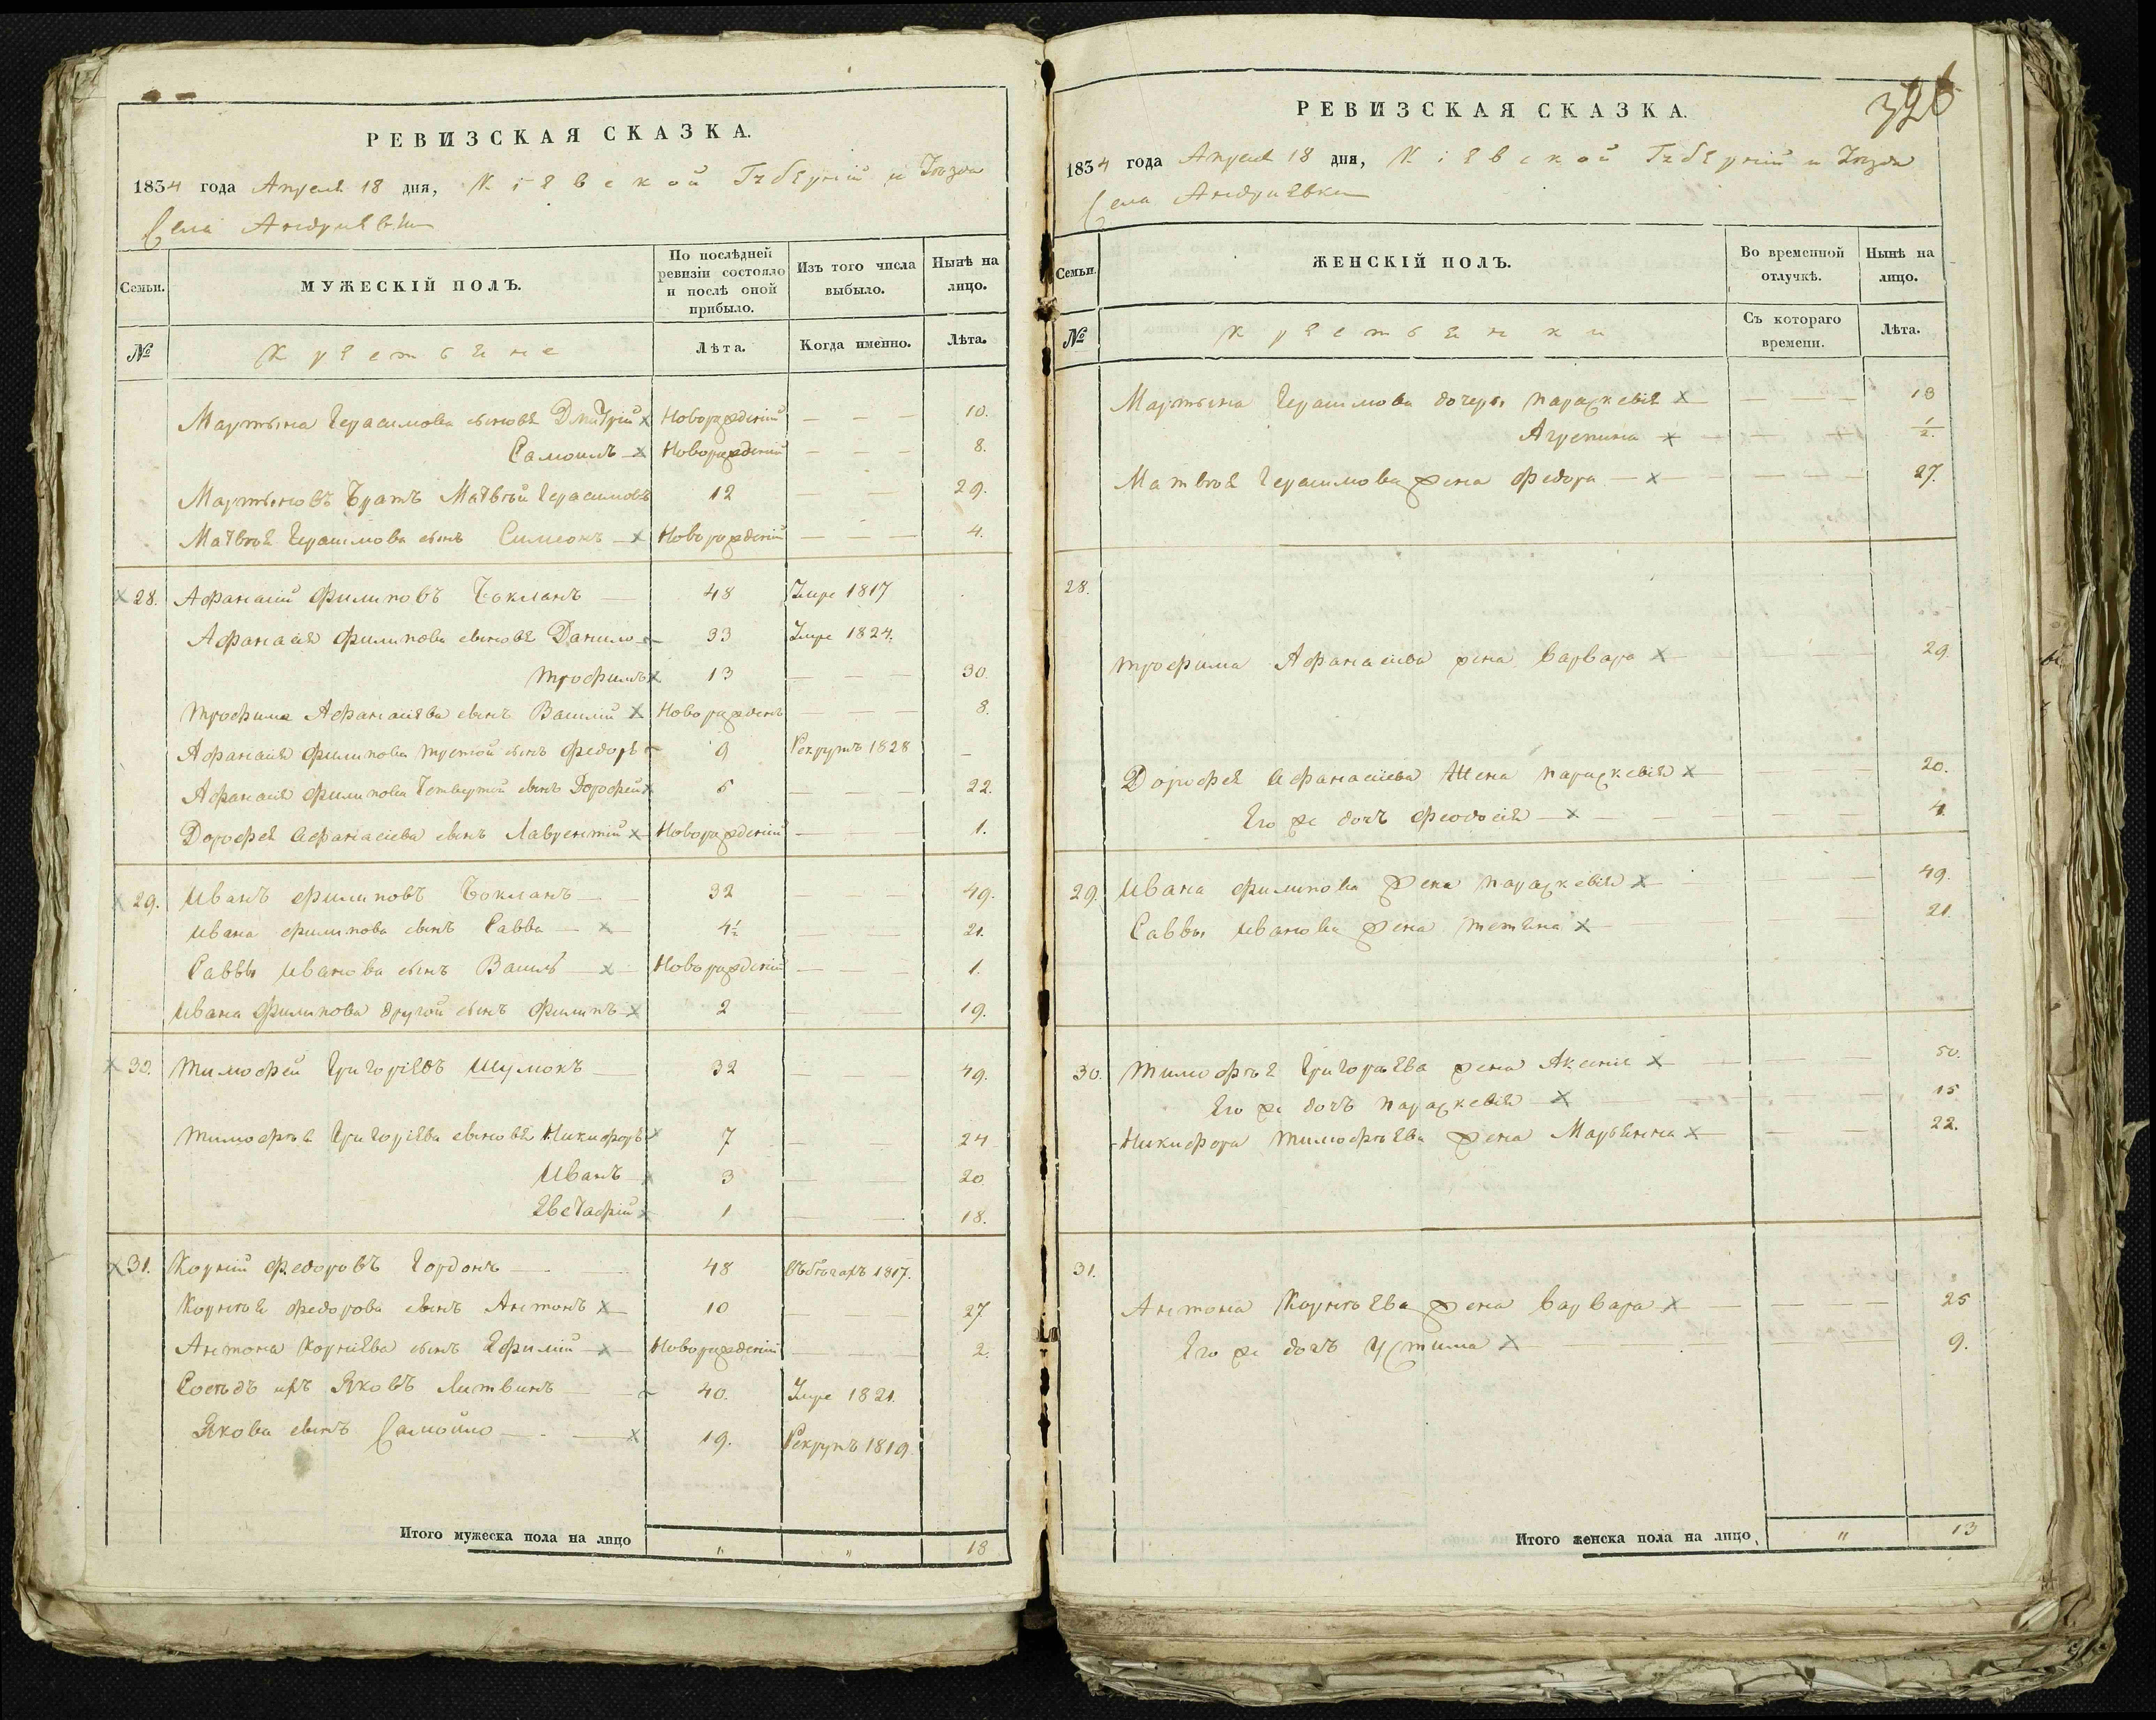 РЕВИЗСКАЯ СКАЗКА.
1834 года Апреля 18 дня, Кіевской Губерніи и Уезда
Села Андриевки
Семьи. МУЖЕСКІЙ ПОЛЪ. По послѣдней ревизіи состояло и послѣ оной прибыло. Изъ того числа выбыло. Нынѣ на лицо.
№ Крестьяне Лѣта. Когда именно. Лѣта.
Мартына Герасимова сыновя Дмитрій Новорожденій 10.
Самоилъ Новорожденій 8.
Мартыновъ Братъ Матвѣй Герасимовъ 12 29.
Матвѣя Герасимова сынъ Симеонъ Новорожденій 4.
28. Афанасій Филиповъ Бокланъ 48 Умре 1817
Афанасія Филипова сыновя Данило 33 Умре 1824.
Трофимъ 13 30.
Трофима Афанасіева сынъ Василій Новорожденъ 8.
Афанасія Филипова третой сынъ Федоръ 9 Рекрутъ 1828
Афанасія Филипова Четвертой сынъ Дорофей 6 22.
Дорофея Афанасіева сынъ Лаврентій Новорожденій 1.
29. Иванъ Филиповъ Бокланъ 32 49.
Ивана Филипова сынъ Савва 4½ 21.
Саввы Иванова сынъ Василь Новорожденій 1.
Ивана Филипова другой сынъ Филипъ 2 19.
30. Тимофей Григоріевъ Шумокъ 32 49.
Тимофѣя Григоріева сыновя Никифоръ 7 24
Иванъ 3 20
Евстафій 1 18.
31. Корній Федоровъ Гордонъ 48 въ бѣгахъ 1817.
Корнѣя Федорова сынъ Антонъ 10 27
Антона Корніева сынъ Ефимій Новорожденій 2.
Сосѣдъ ихъ Яковъ Литвинъ 40. Умре 1821.
Якова сынъ Самойло 19. Рекрутъ 1819
Итого мужеска пола на лицо " " 18
326
РЕВИЗСКАЯ СКАЗКА.
1834 года Апреля 18 дня, Кіевской Губерніи и Уезда
Села Андриевки
Семьи. ЖЕНСКІЙ ПОЛЪ. Во временной отлучкѣ. Нынѣ на лицо.
№ Крестьянки Съ котораго времени. Лѣта.
Мартына Герасимова дочеры Параскевія 18
Агрепина ½.
Матвѣя Герасимова жена Федора 27.
28.
Трофима Афанасіева жена Варвара 29.
Дорофея Афанасіева Жена Параскевія 20.
Его же дочъ Феодосія 4.
29. Ивана Филипова жена Параскевія 49.
Саввы Иванова жена Тетяна 21.
30. Тимофѣя Григорьева жена Аксенія 50.
Его же дочъ Параскевія 15
Никифора Тимофѣева жена Марьянна 22.
31.
Антона Корнѣева жена Варвара 25
Его же дочъ Устима 9.
Итого женска пола на лицо, " 13